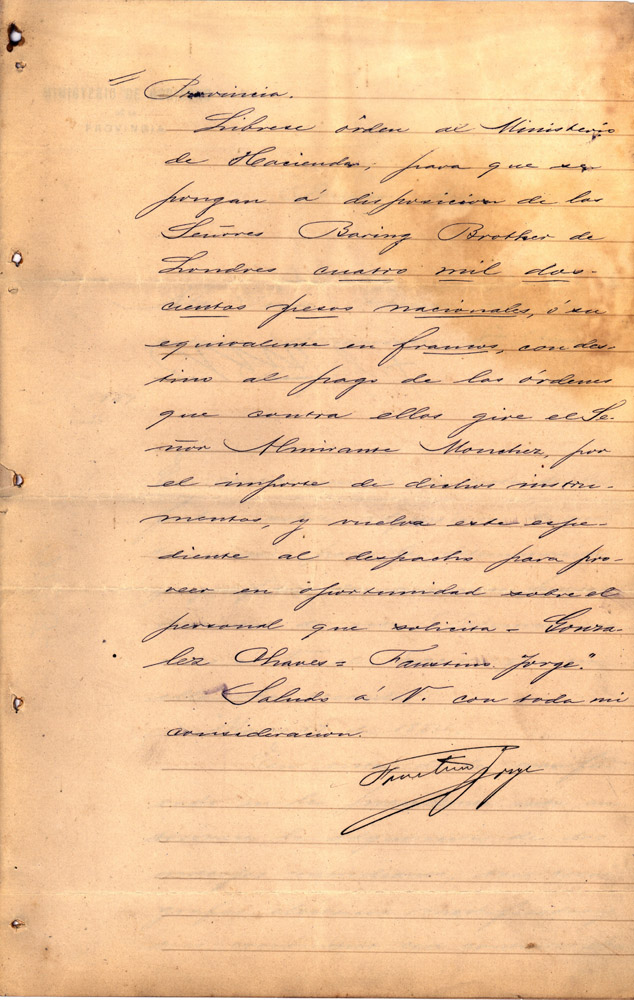 // Provincia.
Librese órden al Ministerio
de Hacienda, para que se
pongan á disposicion de los
Señores Baring Brother de
Londres cuatro mil dos-
cientos pesos nacionales, ó su
equivalente en francos, con des-
tino al pago de las órdenes
que contra ellos gire el Se-
ñor Almirante Mouchez, por
el importe de dichos instru-
mentos, y vuelva este espe-
diente al despacho para pro-
veer en oportunidad sobre el
personal que solicita - Gonza-
lez Chaves = Faustino Jorge."
Saludo á V. con toda mi
consideracion.
Faustino Jorge